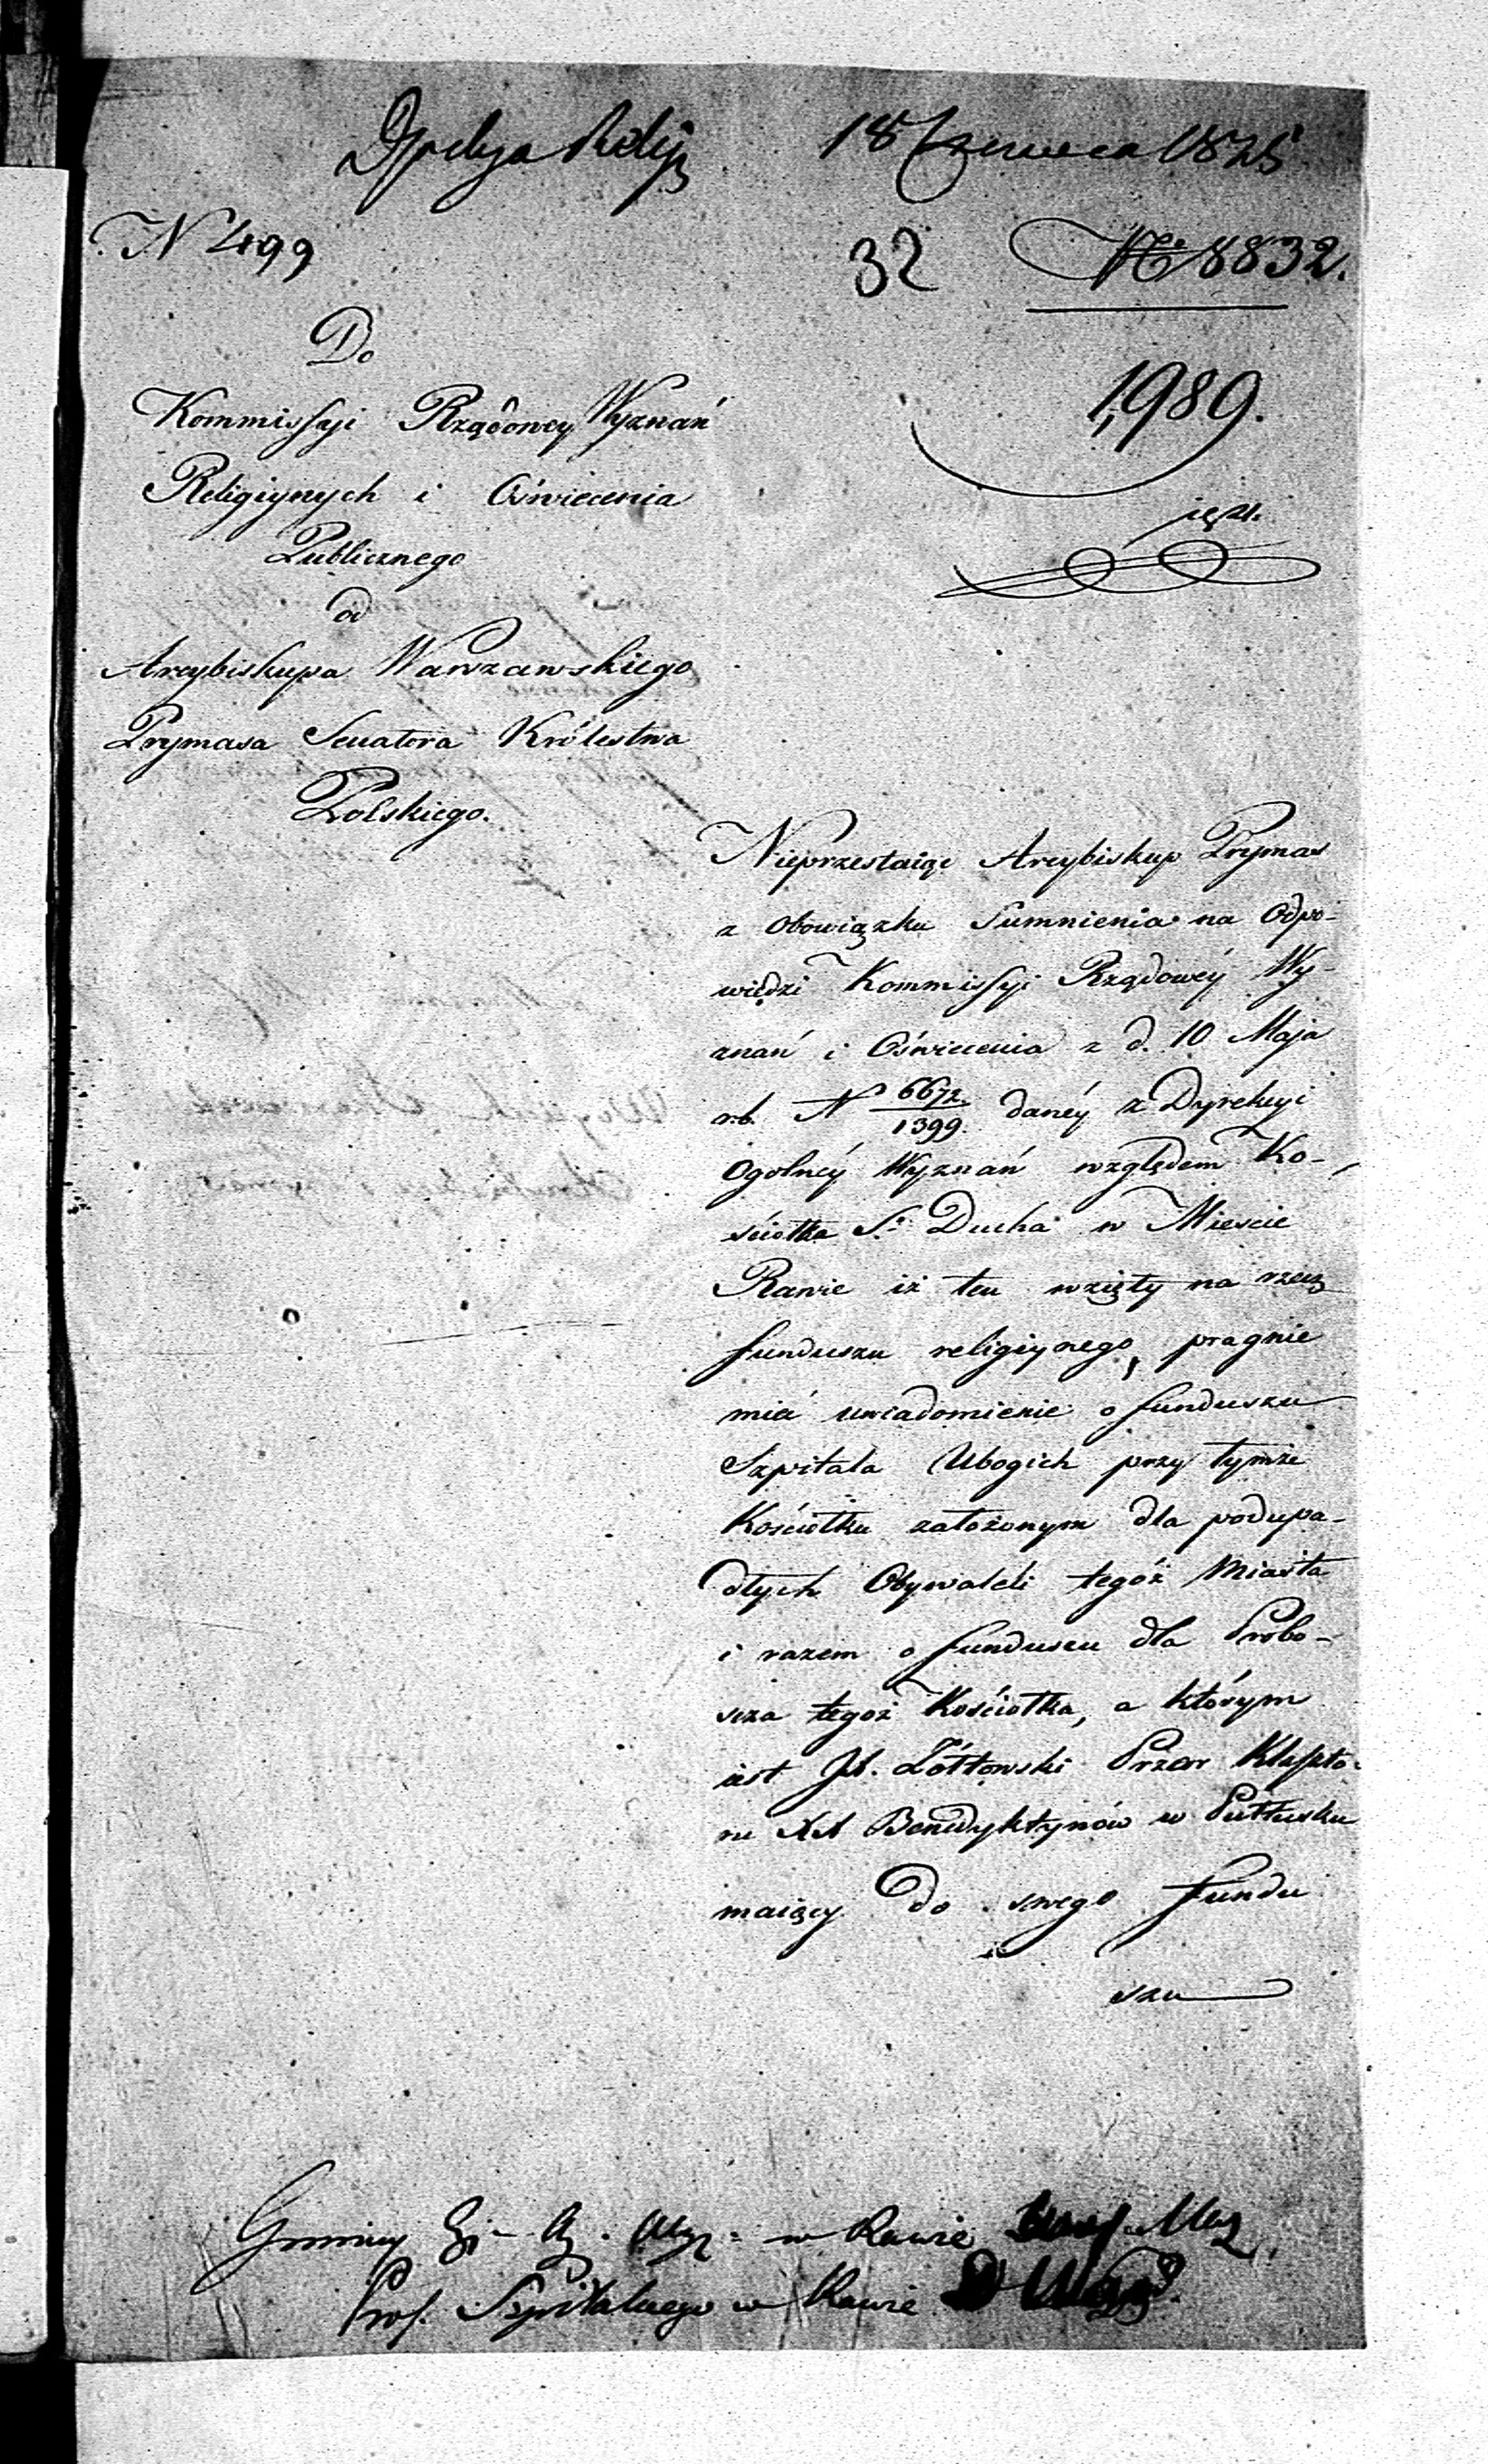 18 Czerwca 1825
N 499
32
No 8832.
1,989.
Do
Kommissyi Rządowey Wyznań
Religiynych i Oświecenia
Publicznego
od
Arcybiskupa Warszawskiego
Prymasa Senatora Królestwa
Polskiego.
Nieprzestaiąc Arcybiskup Prymas
z Obowiązku Sumnienia na Odpo-
wiedzi Kommissyi Rządowéy Wy-
znań i Oświecenia z d. 10 Maja
r.b. N 6672./1399. danéy z Dyrekcyi
Ogolnéy Wyznań względem Ko-
ściołka S. Ducha w Mieście
Rawie iż ten wzięty na rzecz
funduszu religiynego, pragnie
mieć uwiadomienie o funduszu
Szpitala Ubogich przy tymże
Kościołku założonym dla podupa-
dłych Obywateli tegóż Miasta
i razem o funduszu dla Probo-
szcza tegoż Kościołka, a którym
iest Żółtowski Przeor Klaszto-
ru XX Benedyktynów w Pułtusku
maiący do swego fundu
szu
Gminny w Rawie
Prof. Szpitalnego w Rawie